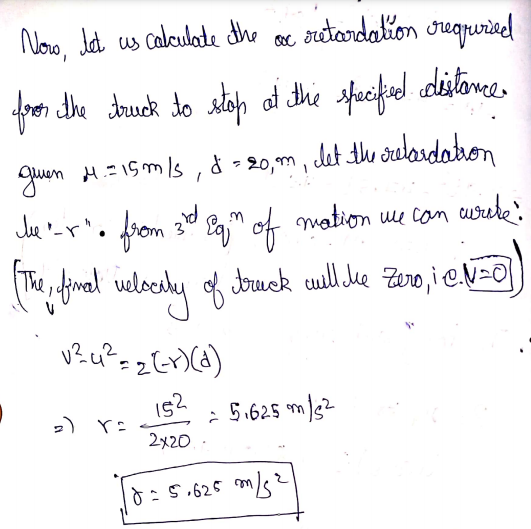 Now, let us calculate the retardation required
for the truck to stop at the specified distance.
given u = 15 m/s, d = 20, m, let the retardation
be "-r". from 3rd Eqn of motion we can write:
(The, final velocity of truck will be Zero, i.e. V=0)
v²-u² = 2(-r)(d)
=) r = 15²/2x20 = 5.625 m/s²
r = 5.625 m/s²